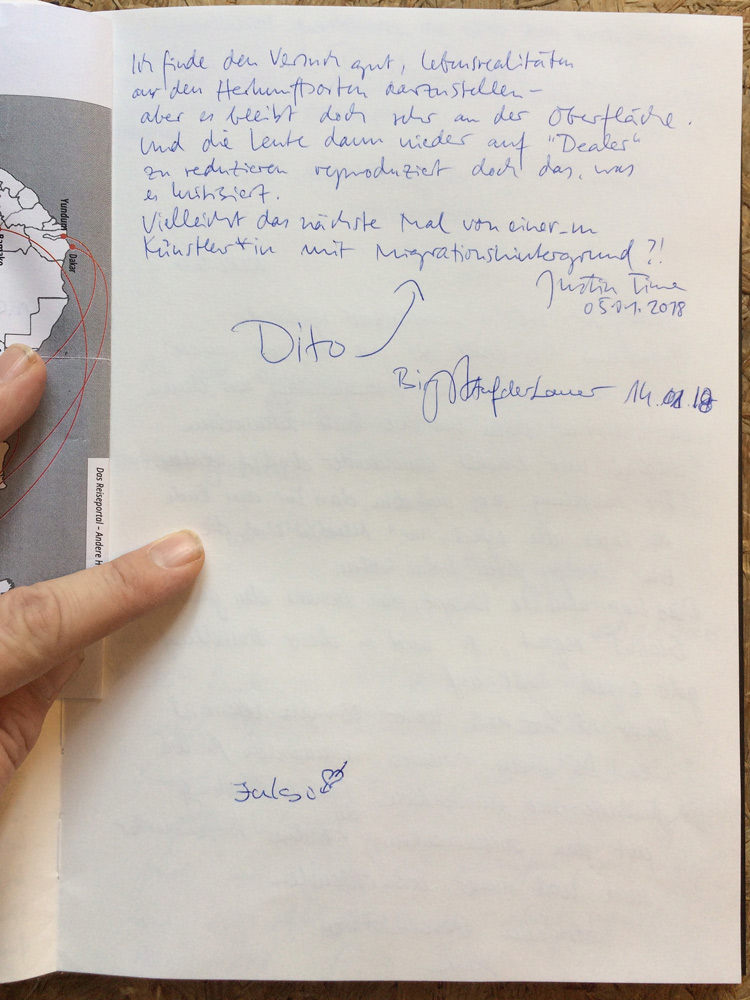 Ich finde den Versuch gut, Lebensrealitäten
aus den Herkunftsorten darzustellen –
aber es bleibt doch sehr an der Oberfläche.
Und die Leute dann wieder auf "Dealer"
zu reduzieren reproduziert doch das, was
es kritisiert.
Vielleicht das nächste Mal von einer_m
Künstler*in mit Migrationshintergrund?!
Justin Time
05.01.2018
Dito
AufderLauer 14.01.18
Yundum
Dakar
Bamako
Das Reiseportal – Andere H